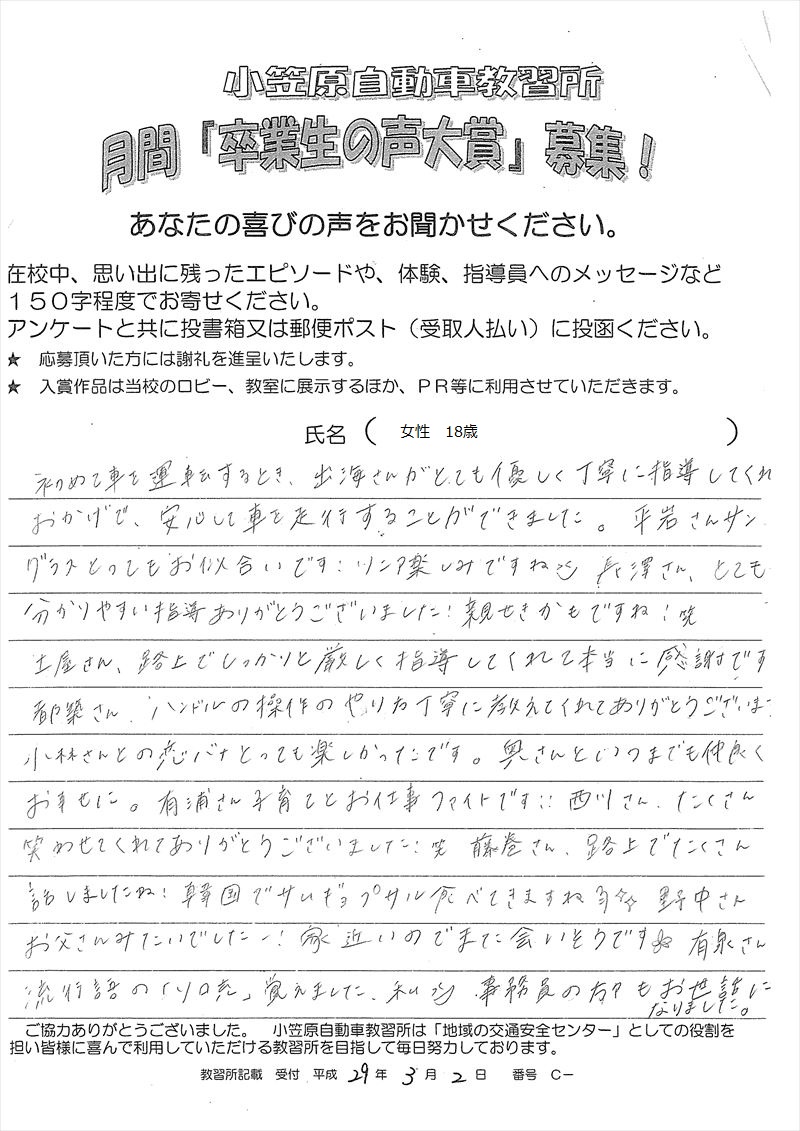 小笠原自動車教習所
月間「卒業生の声大賞」募集！
あなたの喜びの声をお聞かせください。
在校中、思い出に残ったエピソードや、体験、指導員へのメッセージなど
１５０字程度でお寄せください。
アンケートと共に投書箱又は郵便ポスト（受取人払い）に投函ください。
★ 応募頂いた方には謝礼を進呈いたします。
★ 入賞作品は当校のロビー、教室に展示するほか、ＰＲ等に利用させていただきます。
氏名（ 女性 18歳 ）
初めて車を運転するとき、出海さんがとても優しく丁寧に指導してくれ
おかげで、安心して車を走行することができました。平岩さんサン
グラスとってもお似合いです！リニア楽しみですね 長澤さん、とても
分かりやすい指導ありがとうございました！親せきかもですね！笑
土屋さん、路上でしっかりと厳しく指導してくれて本当に感謝です
都築さん、ハンドルの操作のやり方丁寧に教えてくれてありがとうございま
小林さんとの恋バナとっても楽しかったです。奥さんといつまでも仲良く
お幸せに。有浦さん子育てとお仕事ファイトです!! 西川さん、たくさん
笑わせてくれてありがとうございました！笑 藤巻さん、路上でたくさん
話しましたね！韓国でサムギョプサル食べてきますね 野中さん
お父さんみたいでしたー！家近いのでまた会いそうです 有泉さん
流行語の「ソロ充」覚えました、私 事務員の方々もお世話に
なりました。
ご協力ありがとうございました。 小笠原自動車教習所は「地域の交通安全センター」としての役割を
担い皆様に喜んで利用していただける教習所を目指して毎日努力しております。
教習所記載 受付 平成 29 年 3 月 2 日 番号 Ｃ－